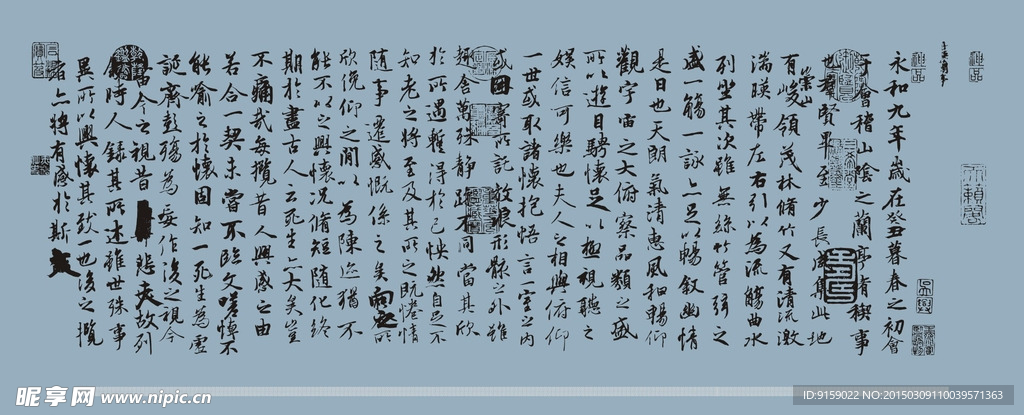 永和九年歲在癸丑暮春之初會
于會稽山陰之蘭亭脩稧事
也羣賢畢至少長咸集此地
有崇山峻領茂林脩竹又有清流激
湍暎帶左右引以為流觴曲水
列坐其次雖無絲竹管弦之
盛一觴一詠亦足以暢敘幽情
是日也天朗氣清惠風和暢仰
觀宇宙之大俯察品類之盛
所以遊目騁懷足以極視聽之
娛信可樂也夫人之相與俯仰
一世或取諸懷抱悟言一室之內
或因寄所託放浪形骸之外雖
趣舍萬殊靜躁不同當其欣
於所遇暫得於己怏然自足不
知老之將至及其所之既惓情
隨事遷感慨係之矣向之所
欣俛仰之閒以為陳迹猶不
能不以之興懷況脩短隨化終
期於盡古人云死生亦大矣豈
不痛哉每攬昔人興感之由
若合一契未嘗不臨文嗟悼不
能喻之於懷固知一死生為虛
誕齊彭殤為妄作後之視今
亦由今之視昔悲夫故列
敘時人錄其所述雖世殊事
異所以興懷其致一也後之攬
者亦將有感於斯文
昵享网 www.nipic.cn
ID:9159022 NO:20150309110039571363